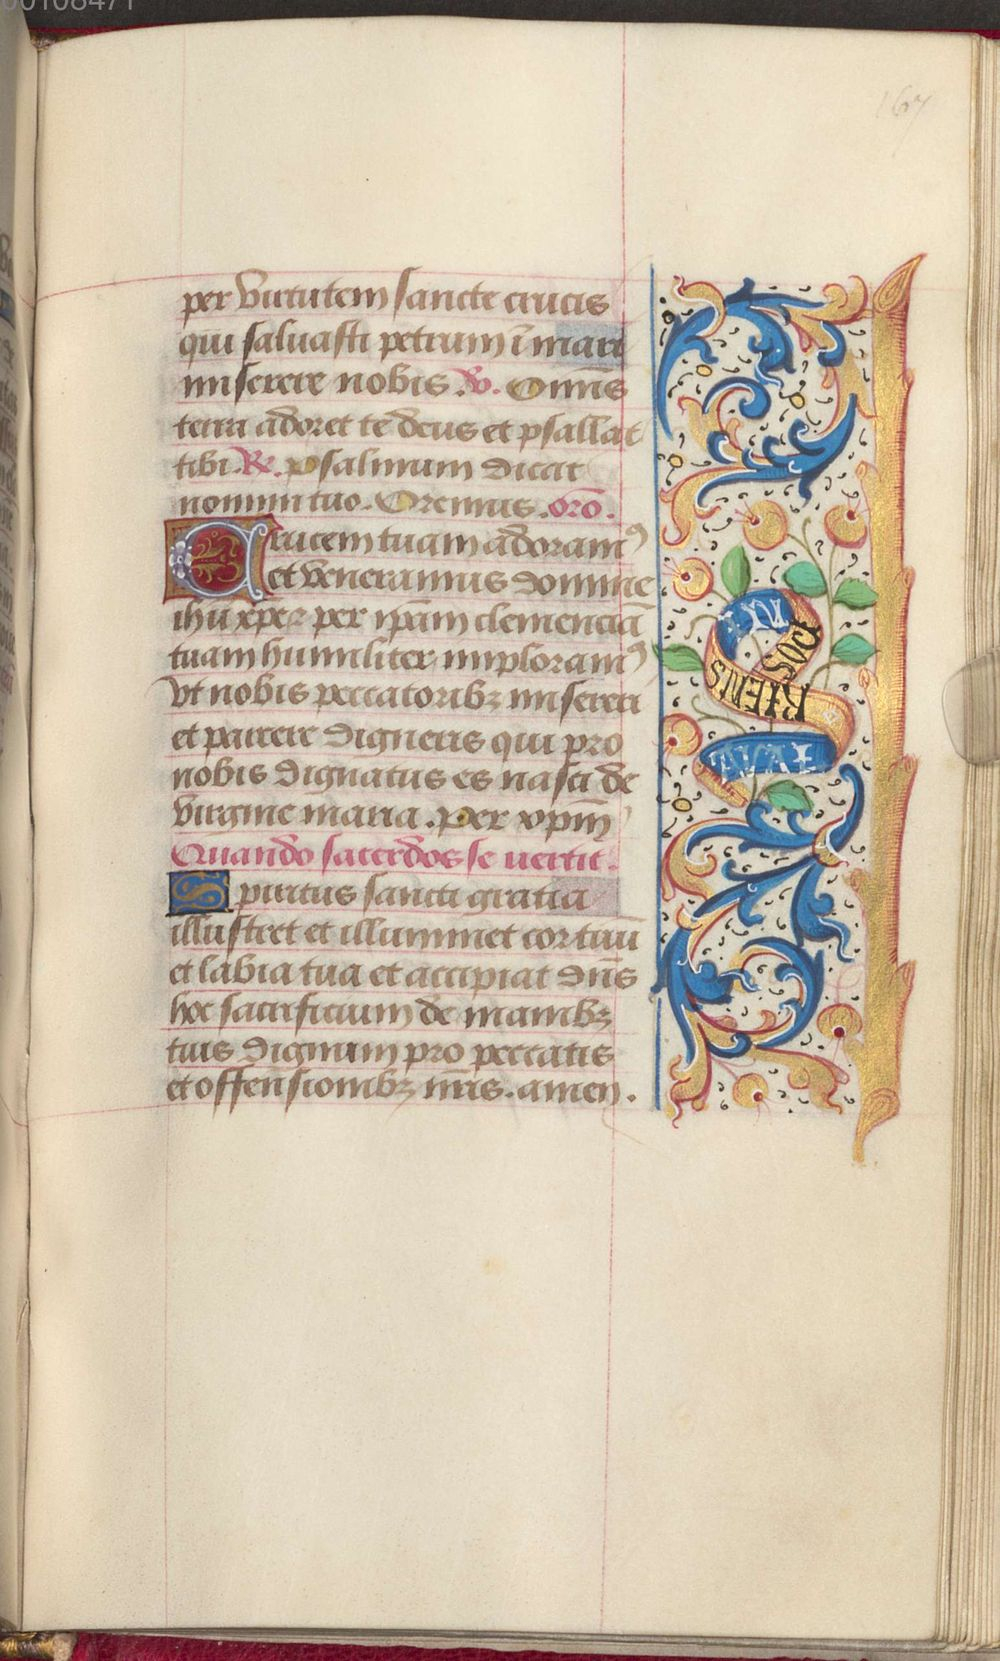 00108471
167
per virtutem sancte crucis
qui saluasti petrum ī mari
miserere nobis. V̄. Omīs
terra adoret te deus et psallat
tibi. R̄. psalmum dicat
nomini tuo. Oremus. orō.
Crucem tuam adoramꝰ
et veneramur domine
ihu xp̄e per ip̄am clemenciā
tuam humiliter imploramꝰ
vt nobis peccatoribꝫ misereri
et parcere digneris qui pro
nobis dignatus es nasci de
virgine maria. per xp̄m
Quando sacerdos se uertit.
Spiritus sancti gratia
illustret et illuminet cor tuū
et labia tua et accipiat dn̄s
hoc sacrificium de manibꝫ
tuis dignum pro peccatis
et offensionibꝫ nr̄is. amen.
RIENS